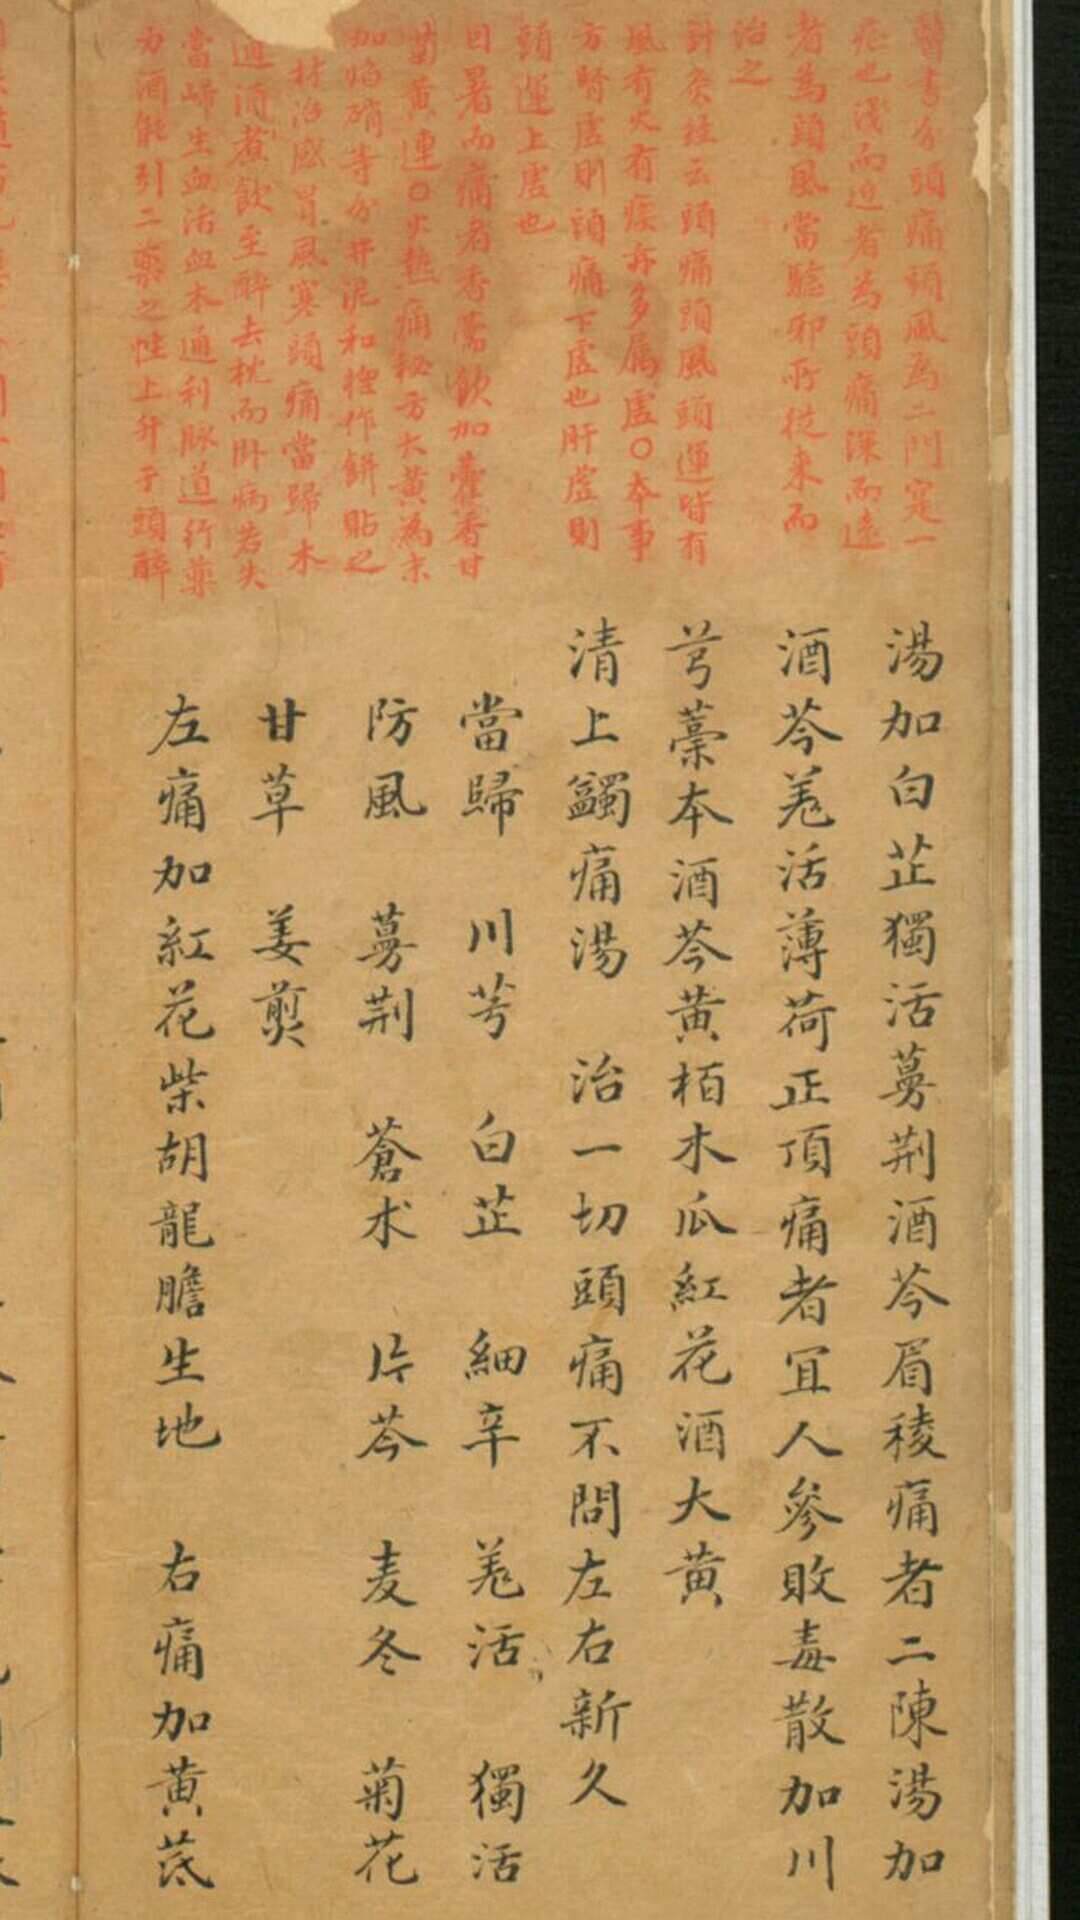 醫書分頭痛頭風為二門寔一
症也淺而近者為頭痛深而遠
者為頭風當驗邪所從来而
治之
針灸経云頭痛頭風頭運皆有
風有火有痰亦多属虛○本事
方腎虛則頭痛下虛也肝虛則
頭運上虛也
因暑而痛者香薷飲加藿香甘
菊黄連○火熱痛秘方大黄為末
加焰硝等分井泥和捏作餅貼之
材治感冐風寒頭痛當歸木
通酒煮飲至醉去枕而卧病若失
當歸生血活血木通通利脉道行藥
力酒能引二藥之性上升于頭醉
湯加白芷獨活蔓荆酒芩眉稜痛者二陳湯加
酒芩羗活薄荷正頂痛者宜人參敗毒散加川
芎藁本酒芩黄栢木瓜紅花酒大黄
清上蠲痛湯 治一切頭痛不問左右新久
當歸 川芎 白芷 細辛 羗活 獨活
防風 蔓荆 蒼术 片芩 麦冬 菊花
甘草 姜煎
左痛加紅花柴胡龍膽生地 右痛加黄芪